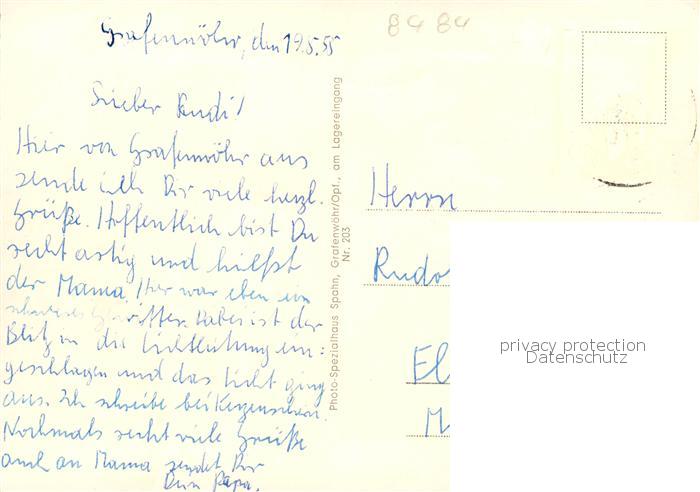 8484
Grafenwöhr, den 19.5.55
Lieber Rudi!
Hier von Grafenwöhr aus
sende ich Dir viele herzl.
Grüße. Hoffentlich bist Du
recht artig und hilfst
der Mama. Hier war eben ein
schweres Gewitter. Dabei ist der
Blitz in die Lichtleitung ein:
geschlagen und das Licht ging
aus. Ich schreibe bei Kerzenschein.
Nochmals recht viele Grüße
auch an Mama sendet Dir
Dein Papa.
Photo-Spezialhaus Spahn, Grafenwöhr/Opf., am Lagereingang
Nr. 203
Herrn
Rudo
El
M
privacy protection
Datenschutz